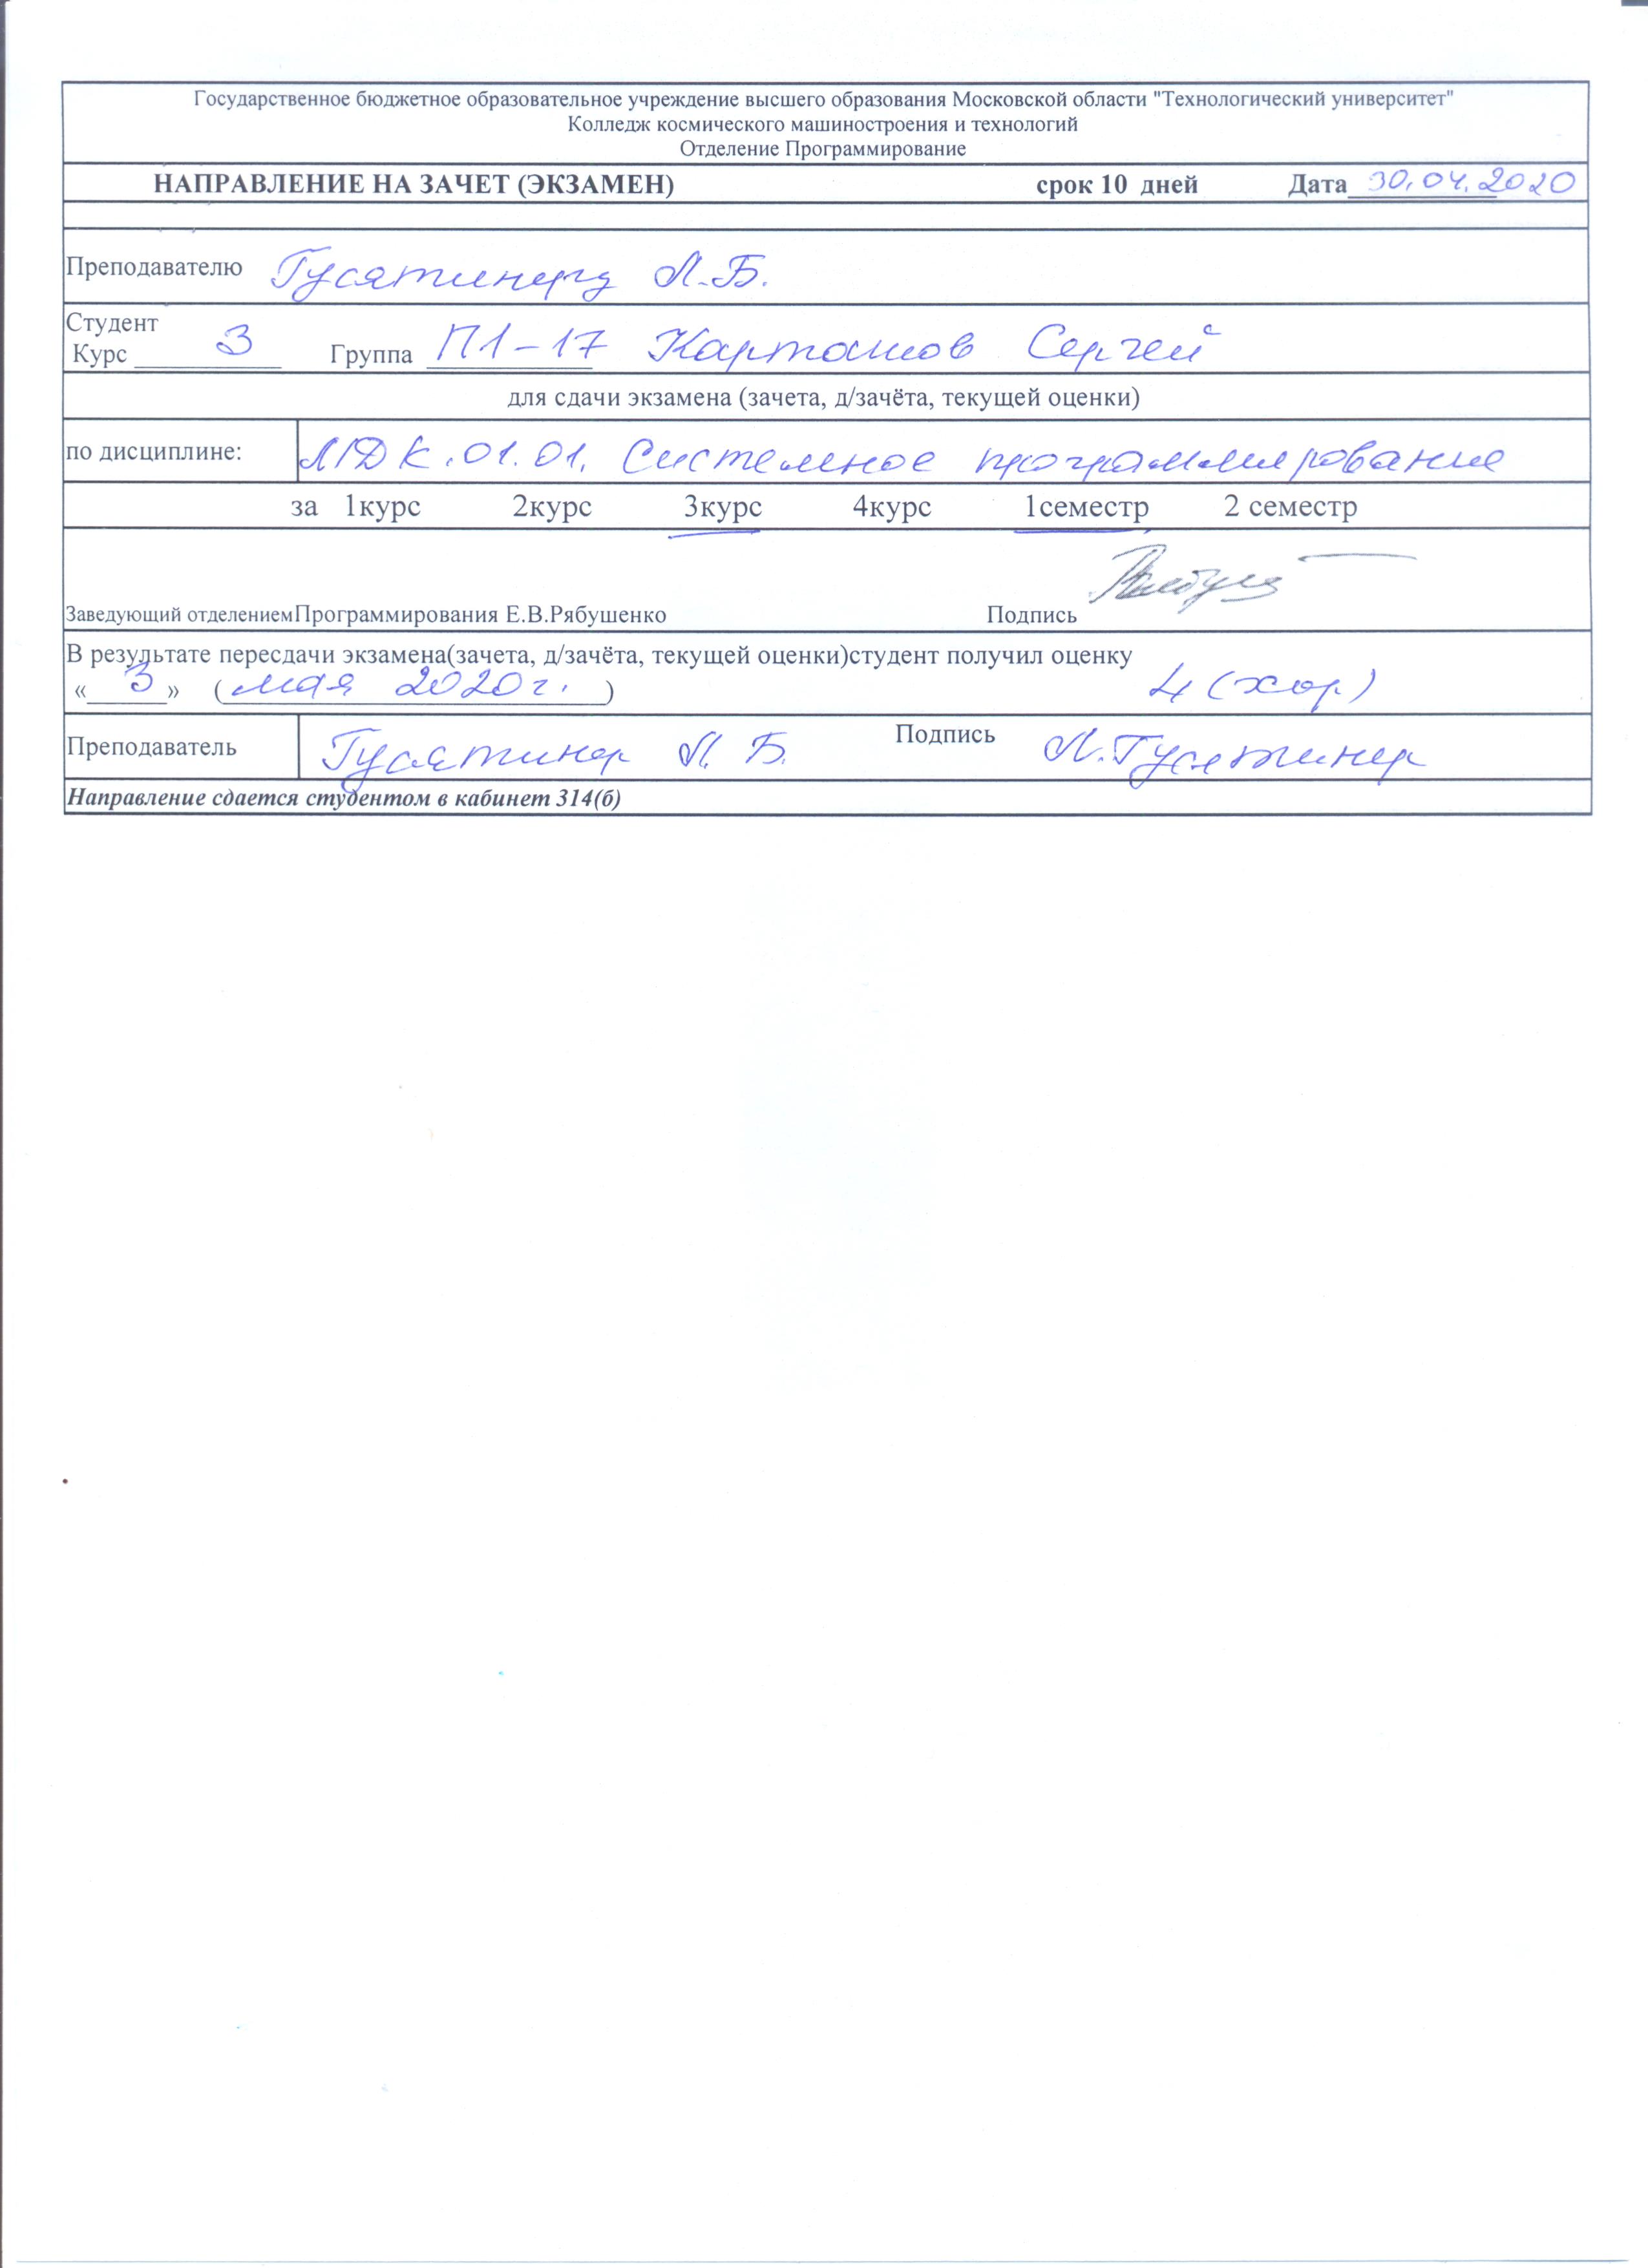 Государственное бюджетное образовательное учреждение высшего образования Московской области "Технологический университет"
Колледж космического машиностроения и технологий
Отделение Программирование
НАПРАВЛЕНИЕ НА ЗАЧЕТ (ЭКЗАМЕН) срок 10 дней Дата 30.04.2020
Преподавателю Гусятинеру Л.Б.
Студент
Курс 3 Группа П1-17 Карташов Сергей
для сдачи экзамена (зачета, д/зачёта, текущей оценки)
по дисциплине: МДК.01.01. Системное программирование
за 1курс 2курс 3курс 4курс 1семестр 2 семестр
Заведующий отделениемПрограммирования Е.В.Рябушенко Подпись
В результате пересдачи экзамена(зачета, д/зачёта, текущей оценки)студент получил оценку
« 3 » (мая 2020г.) 4 (хор)
Преподаватель Гусятинер Л.Б. Подпись Л.Гусятинер
Направление сдается студентом в кабинет 314(б)